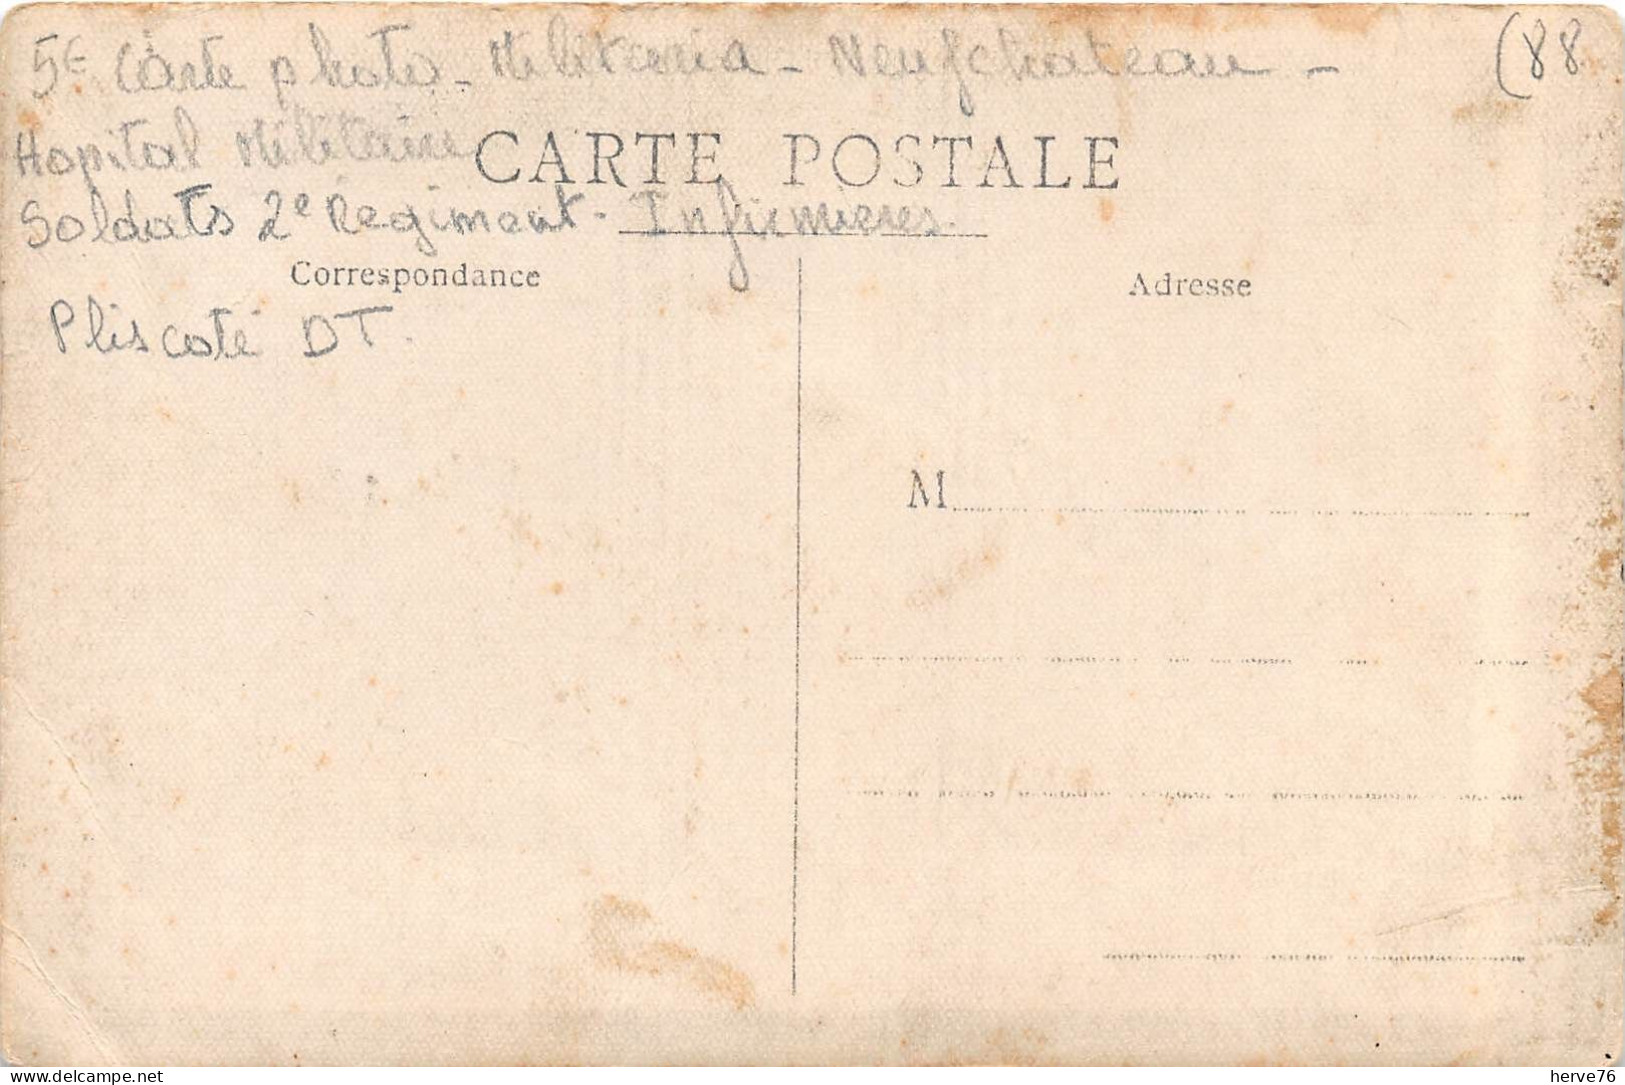 5€ Carte photo - Militaria - Neufchateau -
(88
Hopital Militaire
CARTE POSTALE
Soldats 2e Regiment - Infirmieres.
Correspondance
Adresse
Plis coté DT.
M
delcampe.net
herve76